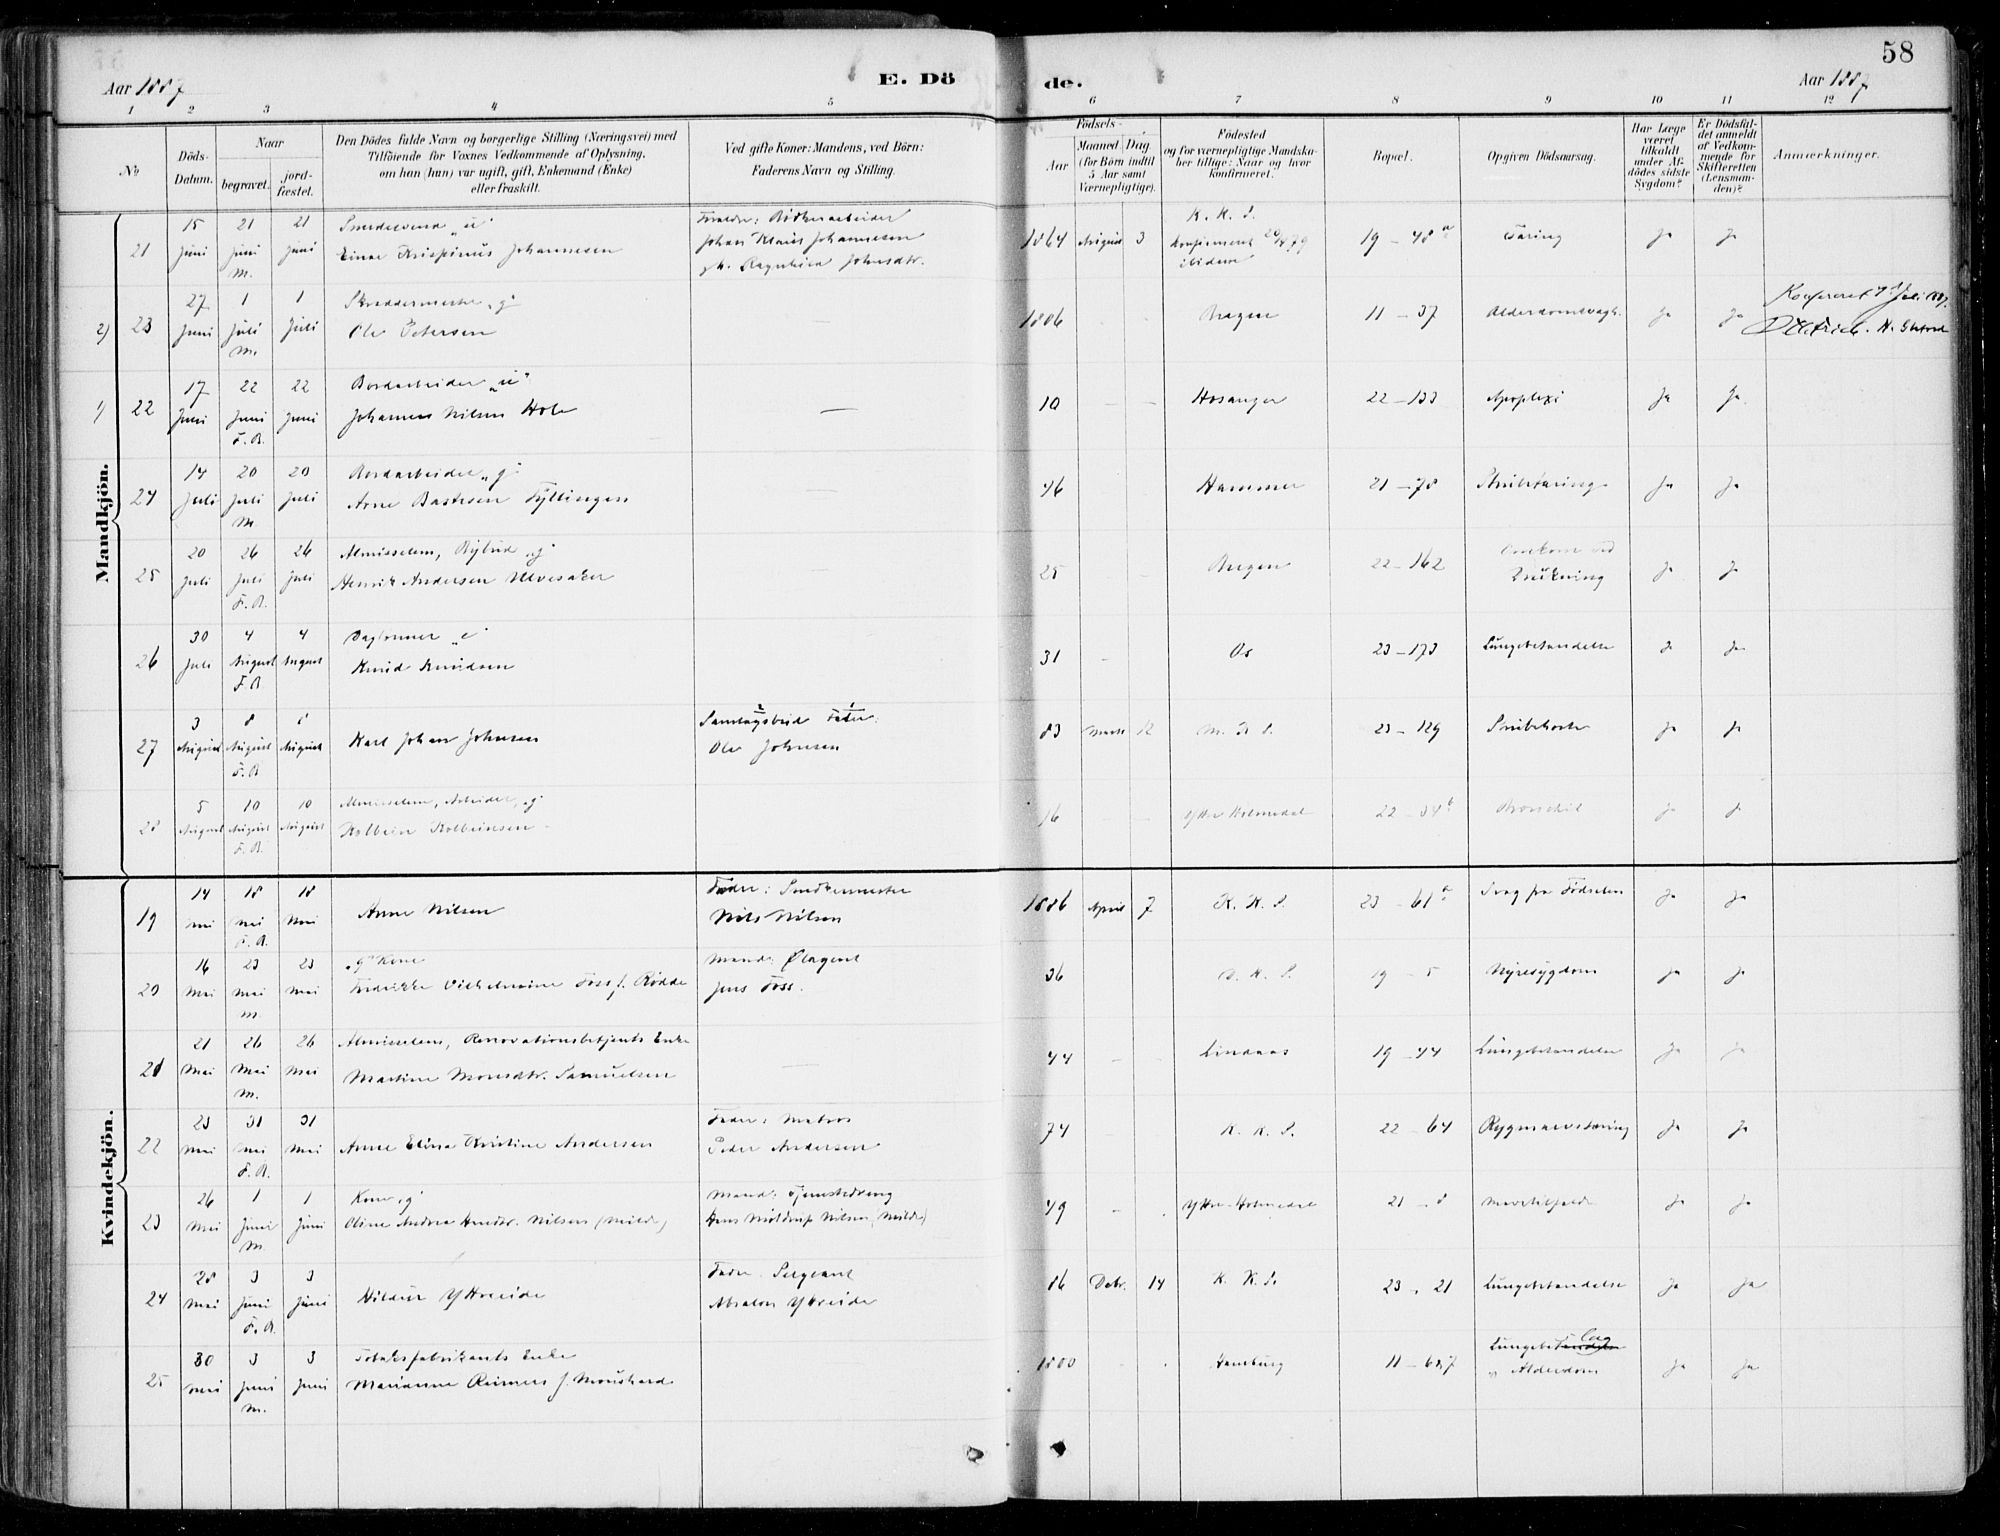 58
Aar 1887
E. Dö
de.
Aar 1887
1 2 3 4 5 6 7 8 9 10 11 12
No
Döds-Datum.
Naar
begravet.
jord-fæstet.
Den Dödes fulde Navn og borgerlige Stilling (Næringsvei) med
Tilföiende for Voxnes Vedkommende af Oplysning,
om han (hun) var ugift, gift, Enkemand (Enke)
eller fraskilt.
Ved gifte Koner: Mandens, ved Börn:
Faderens Navn og Stilling.
Födsels-
Aar
Maaned Dag
(for Börn indtil
5 Aar samt
Værnepligtige).
Födested
og for værnepligtige Mandska-
ber tillige: Naar og hvor
konfirmeret.
Bopæl.
Opgiven Dödsaarsag.
Har Læge
været
tilkaldt
under Af-
dödes sidste
Sygdom?
Er Dödsfal-
det anmeldt
af Vedkom-
mende for
Skifteretten
(Lensman-
den)?
Anmærkninger.
Mandkjön.
21 15 Juni 21 Juni M. 21 Juni
Smedesvend "u"
Einar Krispinus Johannesen
Forældre: Bödkerarbeider
Johan Klaus Johannesen
og Ragnhild Johnsdtr.
1864 August 3 K. K. S. konfirmeret 79 ibidem 19 - 48 a Tæring Ja Ja
2) 23 27 Juni 1 Juli M. 1 Juli
Skreddermester "g"
Ole Petersen
1806 - - Bergen 11 - 37 Alderdomssvagh. Ja Ja Konfereret Juli 1887.
1) 22 17 Juni 22 Juni F.B. 22 Juni
Bordarbeider "u"
Johannes Nilsen Hole
-
10 - - Hosanger 22 - 133 Apoplexi Ja Ja
24 14 Juli 20 Juli M 20 Juli
Bordarbeider "g"
Arne Bastesen Fyllingen
46 Hammer 21 - 78 Strubetæring Ja Ja
25 20 Juli 26 Juli F.B. 26 Juli
Almisselem, Bybud "g"
Henrik Andersen Ulvesaker
25 Bergen 22 - 162 Omkom ved Drukning Ja Ja
26 30 Juli 4 August F.B 4 August
Daglønner "e"
Knud Knudsen
31 - Os 23 - 173 Lungebetændelse Ja Ja
27 3 August 8 August F.B 8 August
Karl Johan Johnsen
Samlagsbud Fader:
Ole Johnsen
83 Marts 12 M. K. S. 23 - 129 Strubehoste Ja Ja
28 5 August 10 August F.B. 10 August
Almisselem, Arbeider, "g"
Kolbein Kolbeinsen
16 - - Ytre Holmedal 22 - 34 b Ja Ja
Kvindekjön.
19 14 Mai 18 Mai F.B. 18 Mai
Anne Nilsen
Fader: Snedkermester
Nils Nilsen
1886 April 7 K. K. S. 23 - 61 a Svag fra Födselen Ja Ja
20 16 Mai 23 Mai M. 23 Mai
"g" Kone
Fredrikke Vilhelmine Foss f. Rödde
Mand: Ølagent
Jens Foss.
36 D. K. S. 19 - 5 Nyresygdom Ja Ja
21 21 Mai 26 Mai M. 26 Mai
Almisselem, Renovationsbetjents Enke
Martine Monsdtr. Samuelsen
-
44 - - Lindaas 19 - 44 Lungebetændelse Ja Ja
22 23 Mai 31 Mai F.B. 31 Mai
Anne Elina Kristine Andersen
Fader: Matros
Peder Andersen
74 K. K. S. 22 - 64 Rygmarvstæring Ja Ja
23 26 Mai 1 Juni M. 1 Juni
Kone "g"
Oline Andrea Nilsen (Milde)
Mand:
Hans Nilsen (Milde)
49 - Ytre-Holmedal 21 - 8 Ja Ja
24 28 Mai 3 Juni F.B. 3 Juni
Hildur Ytreeide
Fader: Sergeant
Absalon Ytreeide
86 Debr. 14 K. K. S. 23 - 21 Lungebetændelse Ja Ja
25 30 Mai 3 Juni M. 3 Juni
Tobaksfabrikants Enke
Marianne Reimers f.
1800 Hamburg 11 - 687 Alderdom Ja Ja